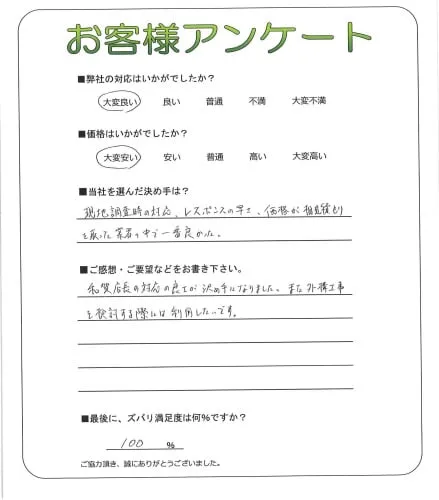 お客様アンケート
■弊社の対応はいかがでしたか？
大変良い 良い 普通 不満 大変不満
■価格はいかがでしたか？
大変安い 安い 普通 高い 大変高い
■当社を選んだ決め手は？
現地調査時の対応、レスポンスの早さ、価格が相見積もり
を取った業者の中で一番良かった。
■ご感想・ご要望などをお書き下さい。
店長の対応の良さが決め手になりました。また外構工事
を検討する際には利用したいです。
■最後に、ズバリ満足度は何%ですか？
100 %
ご協力頂き、誠にありがとうございました。